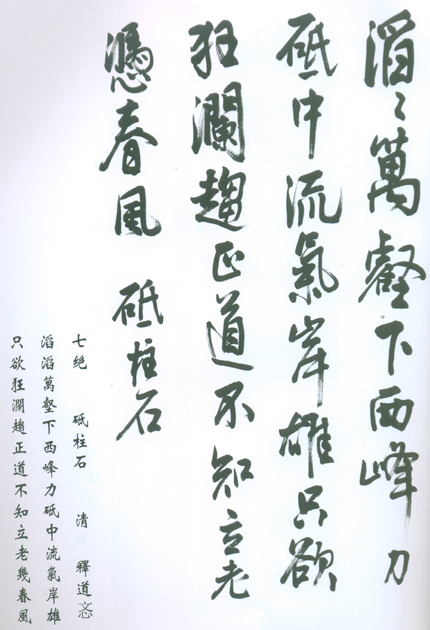 滔〻萬壑下西峰力
砥中流氣岸雄只欲
狂瀾趨正道不知立老
憑春風 砥柱石
七绝 砥柱石 清 釋道忞
滔滔萬壑下西峰力砥中流氣岸雄
只欲狂瀾趨正道不知立老幾春風